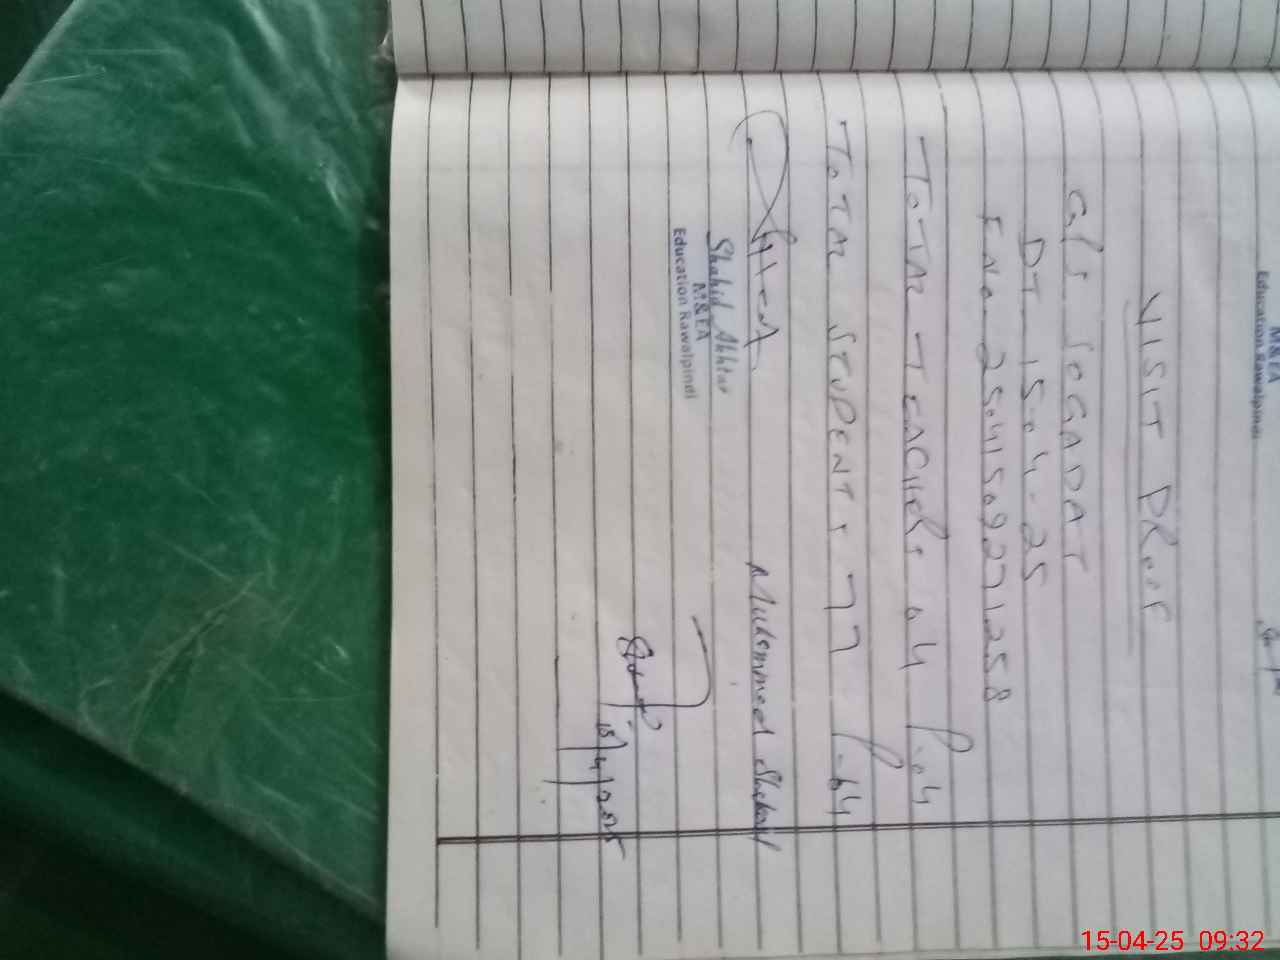 M&EA
Education Rawalpindi
VISIT PROOF
GPS SOGADAT
DT- 15-04-25
FNo- 250415092271258
TOTAL TEACHERS 04 P.04
TOTAL STUDENTS 77 P.64
Muhammad Shakeel
Shahid Akhtar
M&EA
Education Rawalpindi
15/4/2025
15-04-25 09:32